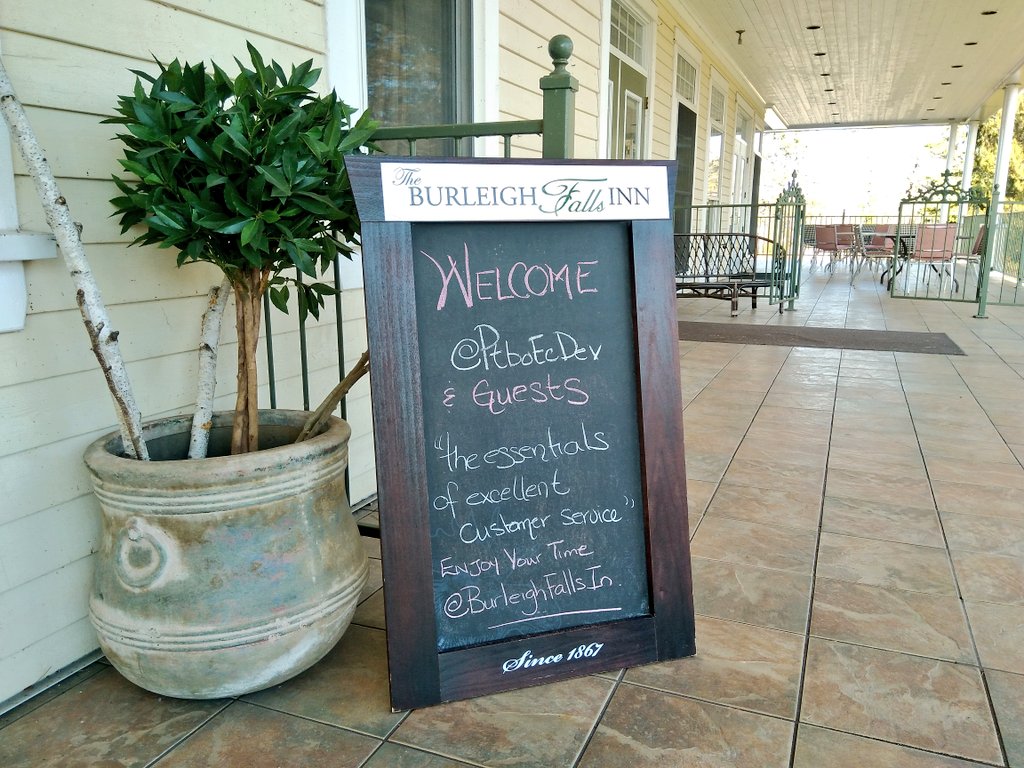 The BURLEIGH Falls INN
WELCOME
@PtboEcDev
& GUESTS
"the essentials
of excellent
Customer service"
ENJOY YOUR TIME
@BurleighFallsIn.
Since 1867